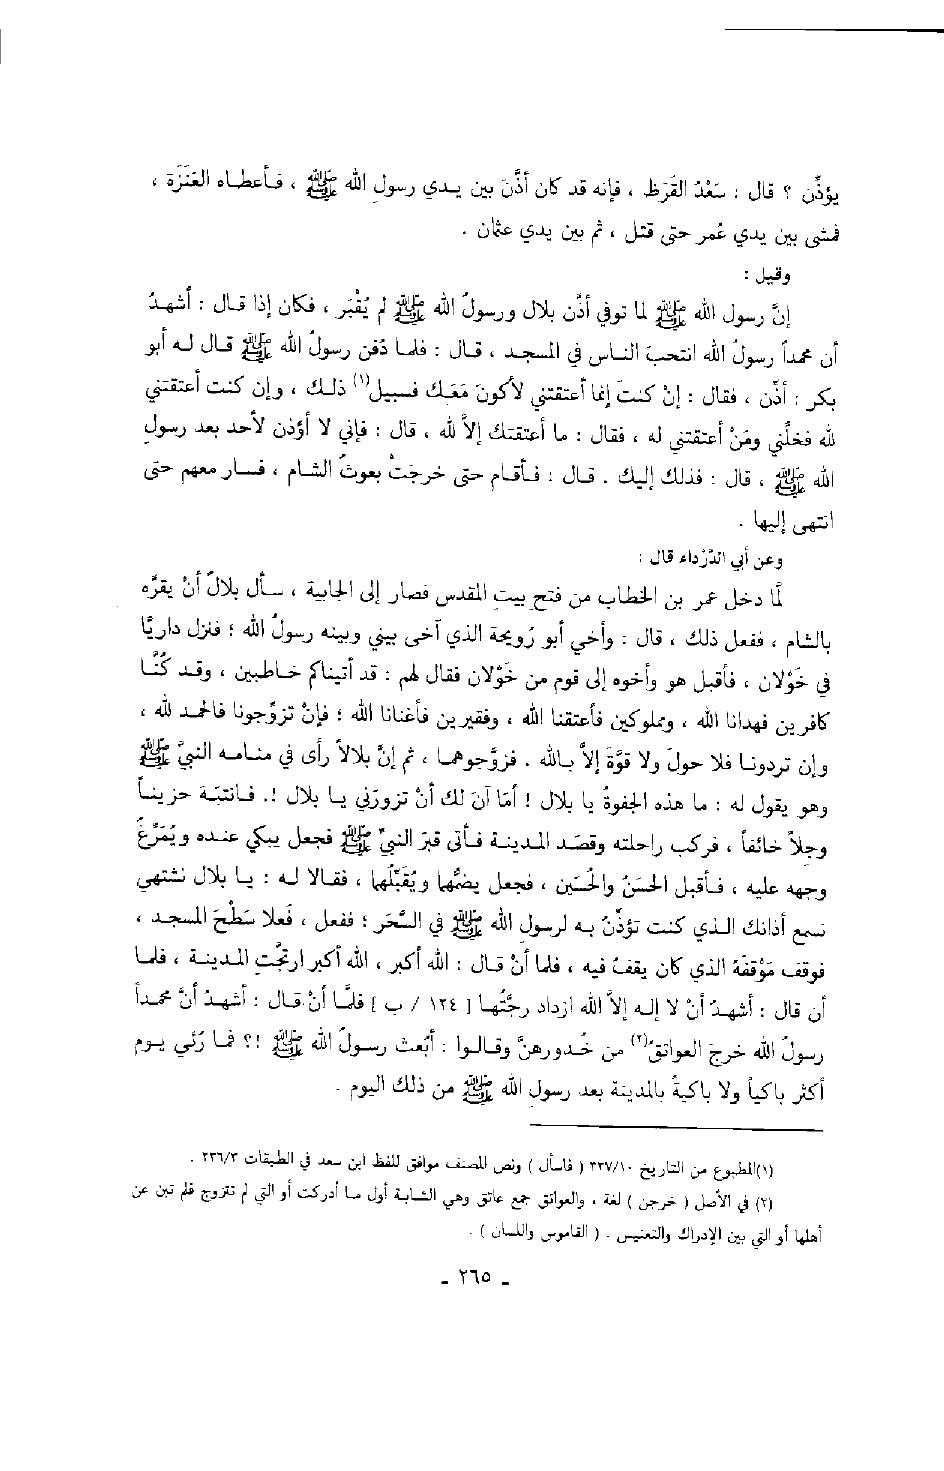 يؤذِّن ؟ قال : سَعْدُ القَرَظ ، فإنه قد كان أذَّنَ بين يـدي رسولِ الله ﷺ ، فـأعطـاه العَنَزَة ،
فمشى بين يدي عُمر حتى قتل ، ثم بين يدي عثمان .
وقيل :
إنَّ رسول الله ﷺ لما توفي أذَّن بلال ورسولُ الله ﷺ لم يُقْبَر ، فكان إذا قـال : أشهدُ
أن محمداً رسولُ الله انتحبَ النـاس في المسجـد ، قـال : فلمـا دُفن رسولُ الله ﷺ قـال لـه أبو
بكر : أذِّن ، فقال : إنْ كنتَ إنما أعتقتني لأكونَ مَعَـك فسبيل(١) ذلـك ، وإن كنت أعتقتني
لله فخلِّني ومَنْ أعتقتني له ، فقال : ما أعتقتك إلاَّ لله ، قال : فإني لا أؤذن لأحد بعد رسولِ
الله ﷺ ، قال : فذلك إليك . قـال : فـأقـام حتى خرجَتْ بعوثُ الشـام ، فسـار معهم حتى
انتهى إليها .
وعن أبي الدَّرْداء قال :
لمّا دخل عمر بن الخطاب من فتح بيتِ المقدس فصار إلى الجابية ، سـأل بلالٌ أنْ يقرَّه
بالشام ، ففعل ذلك ، قال : وأخي أبو رُويحة الذي آخى بيني وبينه رسولُ الله ؛ فنزل داريَّا
في خَوْلان ، فأقبل هو وأخوه إلى قوم من خَوْلان فقال لهم : قد أتيناكم خـاطبين ، وقـد كُنَّـا
كافرين فهدانا الله ، ومملوكين فأعتقنا الله ، وفقيرين فأغنانا الله ؛ فإنْ تزوِّجونا فالحمد لله ،
وإن تردونـا فلا حولَ ولا قوَّة إلاَّ بـالله . فزوَّجوهمـا ، ثم إنَّ بلالاً رأى في منـامـه النبيَّ ﷺ
وهو يقول له : ما هذه الجفوةُ يا بلال ! أمَا آنَ لك أنْ تزورَني يـا بلال !. فـانتبَـهَ حزينـاً
وجلاً خائفاً ، فركب راحلته وقصَد المدينة فأتى قبرَ النبيِّ ﷺ فجعل يبكي عنده ويُمَرِّغُ
وجهه عليه ، فـأقبل الحسَنُ والحُسَين ، فجعل يضمُّها ويُقَبِّلُها ، فقـالا لـه : يـا بلال نشتهي
نسمع أذانك الـذي كنت تؤذِّنُ بـه لرسولِ الله ﷺ في السَّحَر ؛ ففعل ، فَعلا سَطْحَ المسجـد ،
فوقف مَوْقفَهُ الذي كان يقفُ فيه ، فلما أنْ قال : الله أكبر ، الله أكبر ارتجَّتِ المدينـة ، فلمـا
أن قال : أشهدُ أنْ لا إلـه إلاَّ الله ازداد رجَّتُها [ ١٢٤ / ب ] فلمَّا أنْ قـال : أشهدُ أنَّ محمداً
رسولُ الله خرجَ العواتقُ(٢) من خُدورهنَّ وقـالـوا : أبُعث رسولُ الله ﷺ !؟ فمـا رُئي يـوم
أكثر باكياً ولا باكيةً بالمدينة بعد رسولِ الله ﷺ من ذلك اليوم .
(١)المطبوع من التاريخ ٣٣٧/١٠ ( فاسأل ) ونص المصنف موافق للفظ ابن سعد في الطبقات ٢٣٦/٣ .
(٢) في الأصل ( خرجن ) لغة ، والعواتق جمع عاتق وهي الشابة أول ما أدركت أو التي لم تتزوج فلم تبن عن
أهلها أو التي بين الإدراك والتعنيس . ( القاموس واللسان ) .
- ٢٦٥ -